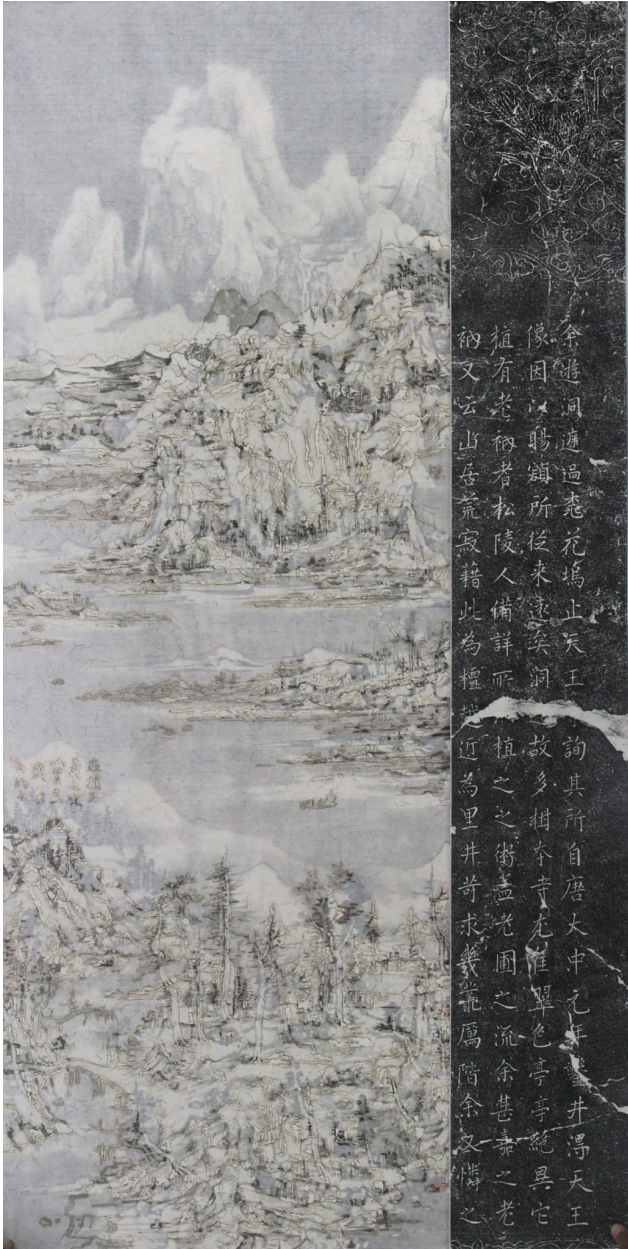 余遊洞過桃花塢止天王 詢其所自唐大中元年鑿井淂天王
像因以易額所從來遠矣洞 故多樹本寺尤佳翠色亭亭絕異它
植有老衲者松陵人備詳所 植之之術盖老圃之流余甚嘉之老
衲又云山居荒寂藉此為檀越近為里井苛求幾叢厲階余文憐之